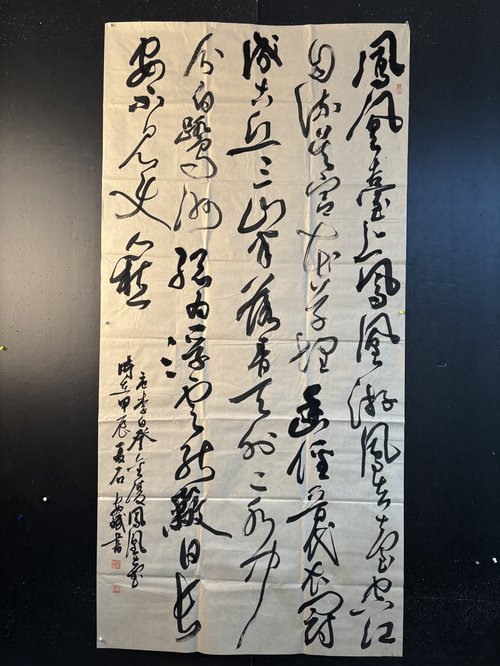 鳳凰臺上鳳凰游鳳去臺空江
自流吳宮花草埋幽徑晉代衣冠
成古丘三山半落青天外二水中
分白鷺洲總為浮雲能蔽日長
安不見使人愁
唐李白登金陵鳳凰臺
時在甲辰夏石書